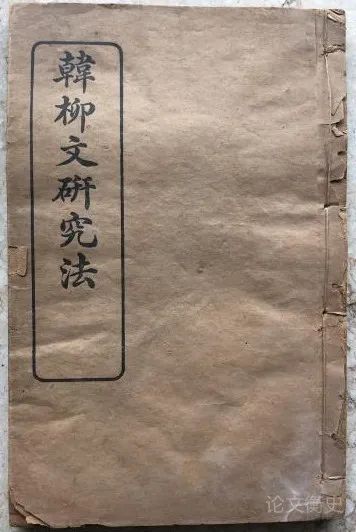 韓柳文研究法
论文衡史